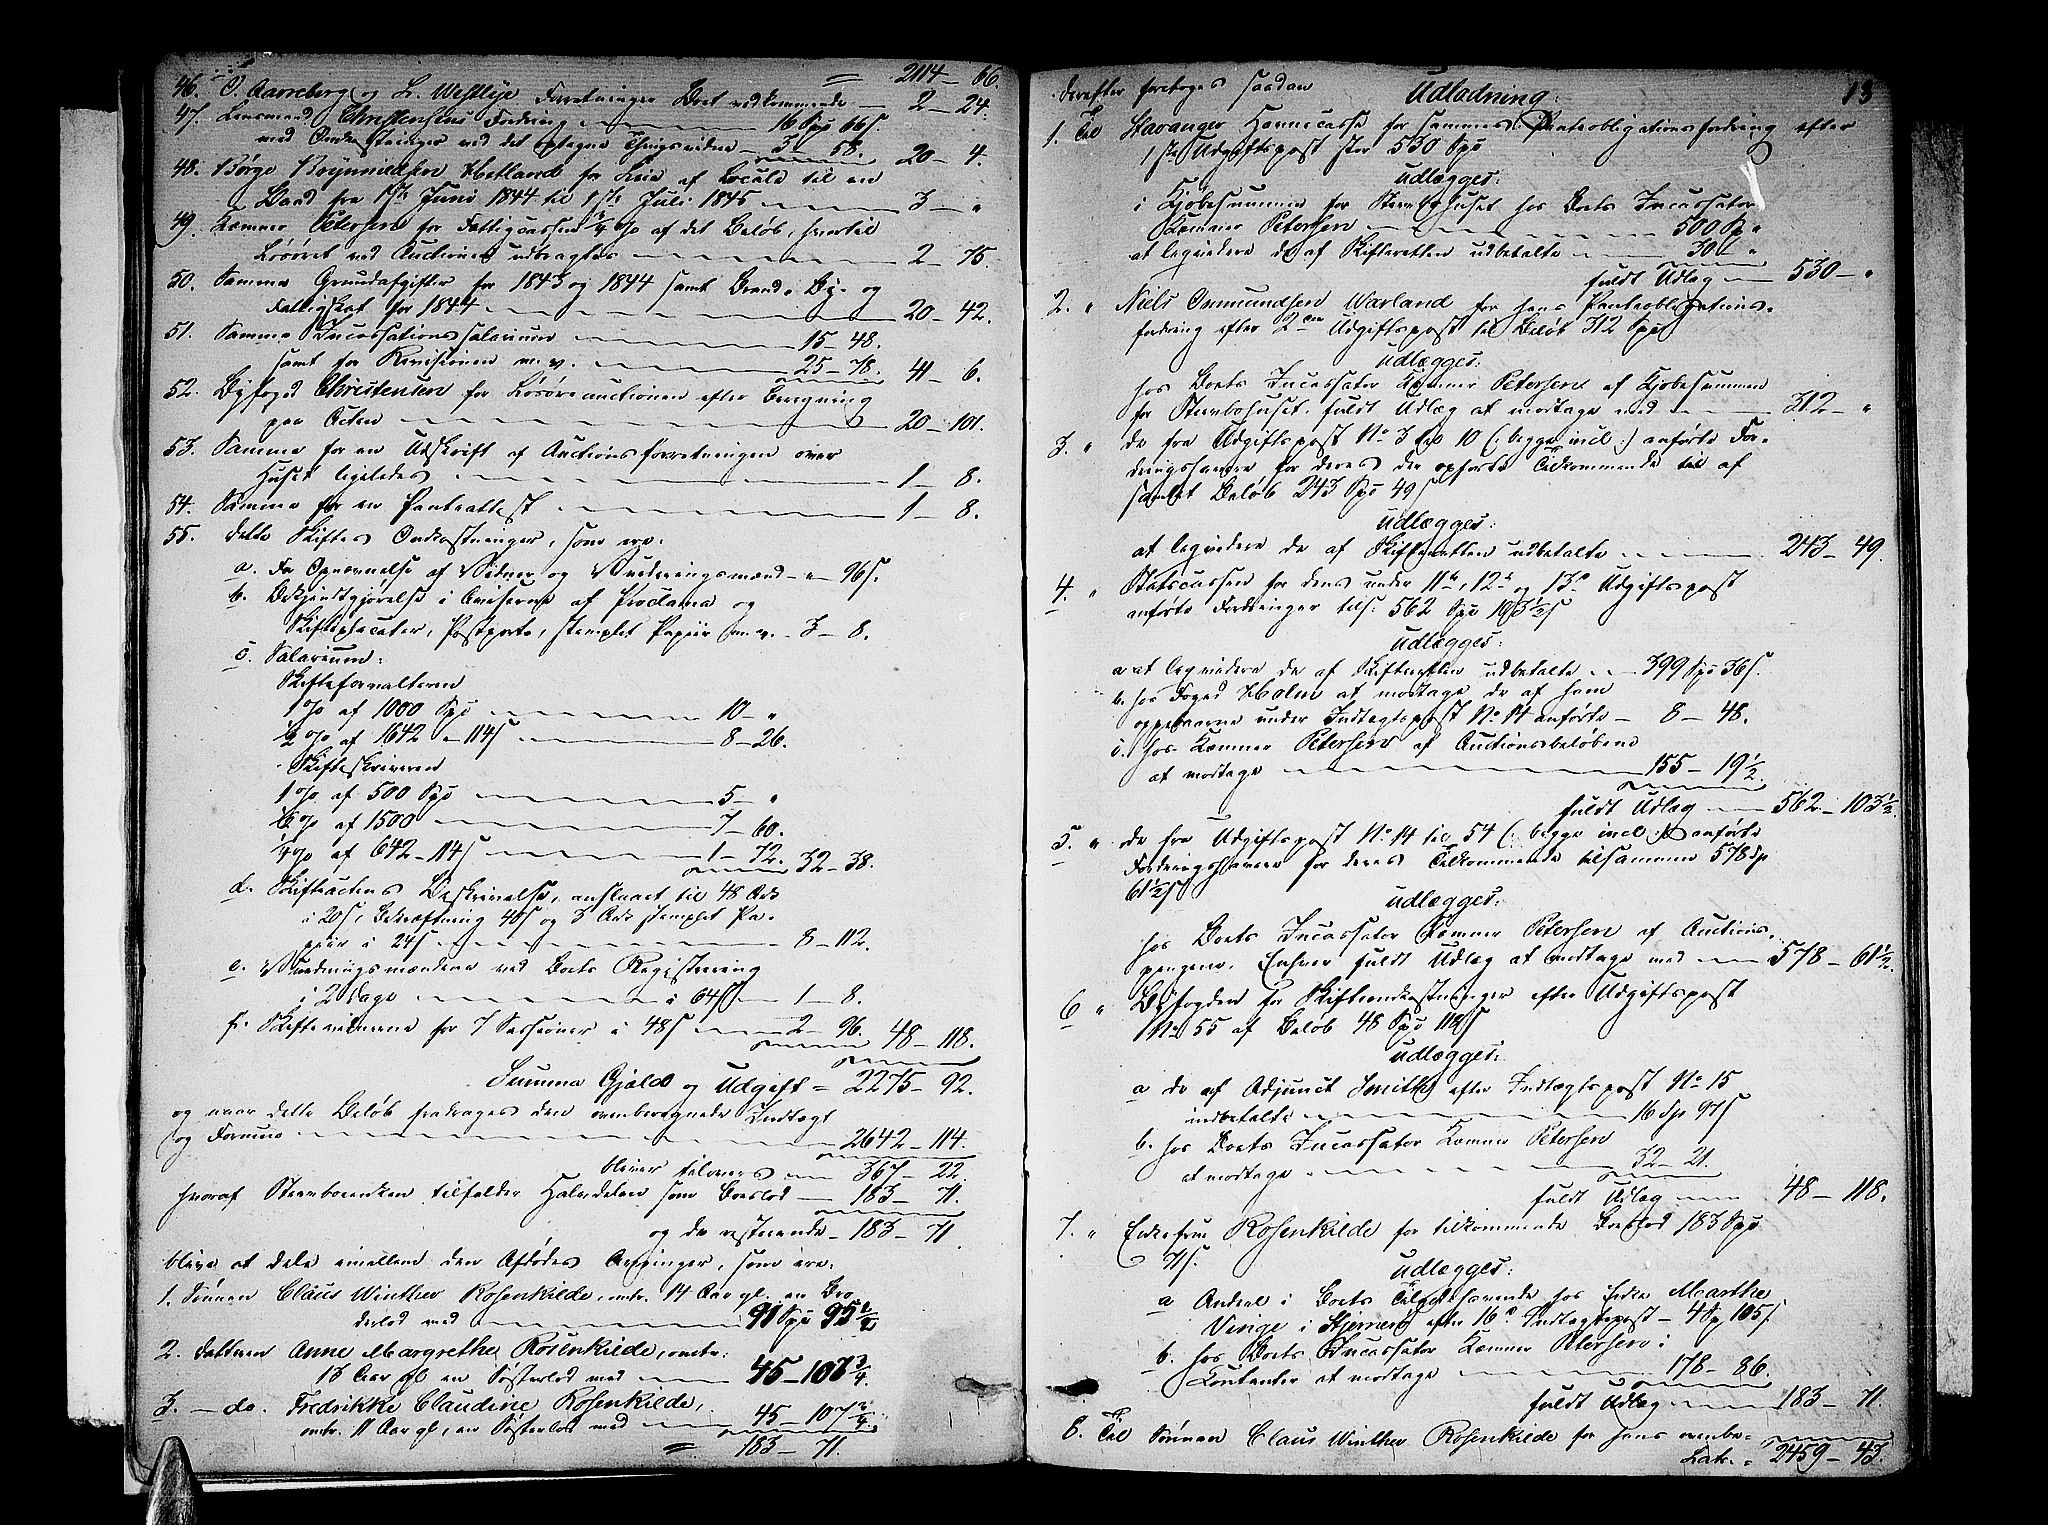 = 2114 - 66.
46. O. Aareberg og L. Westlye Forretninger Boet vedkommende - 2 - 24.
47. Lensmand Christensens Fordring 16 Spd 66 s.
med Omkostninger ved det optagne Thingsvidne 3 - 58. 20 - 4.
48. Börge Hetland for Leie af Locale til en
Baad fra 1ste Juni 1844 til 1ste Juli 1845 3 - "
49. Kæmner Petersen for Fattigcassen ¼ % af det Beløb, hvortil
Løsøret ved Auctionen udbragtes 2 - 75.
50. Samme Grundafgifter for 1843 og 1844 samt Brand- By- og
Fattigskat for 1844 20 - 42.
51. Samme Incassationssalarium 15 - 48.
samt for Revisionen m. v. 25 - 78. 41 - 6.
52. Byfoged Christensen for Løsøreauctionen efter Beregning
paa Acten 20 - 101.
53. Samme for en Udskrift af Auctionsforretningen over
Huset ligeledes 1 - 8.
54. Samme for en Panteattest 1 - 8.
55. dette Skiftes Omkostninger, som ere:
a. For Opnævnelse af Vidner og Vurderingsmænd - " - 96 s.
b. Bekjendtgjørelse i Aviserne af Proclama og
Skifteplacater, Postporto, stemplet Papiir m. v. - 3 - 8.
c. Salarium:
Skifteforvalteren
1 % af 1000 Spd 10 - "
½ % af 1642 - 114 s 8 - 26.
Skifteskriveren
1 % af 500 Spd 5 - "
½ % af 1500 7 - 60.
¼ % af 642 - 114 s 1 - 72. 32 - 38.
d. Skifteactens Beskrivelse, anslaaet til 48 Ark
i 20 s, Bekræftning 40 s og 3 Ark stemplet Pa-
piir i 24 s 8 - 112.
e. Vurderingsmændene ved Boets Registrering
i 2 Dage i 64 s 1 - 8.
f. Skiftevidnerne for 7 Sessioner i 48 s 2 - 96. 48 - 118.
Summa Gjæld og Udgift = 2275 - 92.
og naar dette Beløb fradrages den ovenberegnede Indtægt
og Formue 2642 - 114.
bliver tilovers 367 - 22.
hvoraf Stervboenken tilfalder Halvdelen som Boeslod 183 - 71.
og de resterende 183 - 71.
blive at dele imellem den Afdødes Arvinger, som ere:
1. Sønnen Claus Winther Rosenkilde, omtr. 14 Aar gl. en Bro-
derlod med 91 Spd 95 ½
2. Datteren Anne Margrethe Rosenkilde, omtr.
13 Aar gl en Søsterlod med 45 - 107 ¾.
3. - do. Fredrikke Claudine Rosenkilde,
omtr. 11 Aar gl, en Søsterlod med 45 - 107 ¾.
= 183 - 71.
13
derefter foretoges saadan Udlodning:
1. Til Stavanger Havnecasse for sammes Panteobligationsfordring efter
1ste Udgiftspost stor 530 Spd
udlægges:
i Kjøbesummen for Stervbohuset hos Boets Incassator
Kæmner Petersen 500 Sp "
at leqvidere de af Skifteretten udbetalte 30 - "
fuldt Udlæg 530 - "
2. " Niels Osmundsen Warland for hans Panteobligations-
fordring efter 2den Udgiftspost til Beløb 312 Spd
udlægges:
hos Boets Incassator Kæmner Petersen af Kjøbesummen
for Stervbohuset, fuldt Udlæg at modtage med 312 - "
3. " de fra Udgiftspost No 3 til 10 (: begge incl :) anførte For-
dringshavere for deres der opførte Tilkommende til af
samlet Beløb 243 Spd 49 s
udlægges:
at leqvidere de af Skifteretten udbetalte 243 - 49.
4. " Statscassen for dens under 11te, 12te og 13de Udgiftspost
anførte Fordringer tils. 562 Spd 103 ½ s
udlægges:
a at leqvidere de af Skifteretten udbetalte 399 Spd 36 s.
b. hos Foged Holm at modtage de af ham
oppebaarne under Indtægtspost No 14 anførte 8 - 48.
c. hos Kæmner Petersen af Auctionsbeløbene
at modtage 155 - 19 ½.
fuldt Udlæg 562 - 103 ½.
5. " de fra Udgiftspost No 14 til 54 (: begge incl :) anførte
Fordringshavere for deres Tilkommende tilsammen 578 Sp
61 ½ s
udlægges:
hos Boets Incassator Kæmner Petersen af Auctions-
pengene. Enhver fuldt Udlæg at modtage med 578 - 61 ½.
6 " Byfogden for Skifteomkostninger efter Udgiftspost
No 55 af Beløb 48 Spd 118 s
udlægges:
a de af Adjunct Smith efter Indtægtspost No 15
indbetalte 16 Sp 97 s
b. hos Boets Incassator Kæmner Petersen
at modtage 32 - 21.
fuldt Udlæg 48 - 118.
7. " Enkefru Rosenkilde for tilkommende Boeslod 183 Spd
71 s.
udlægges:
a Andeel i Boets Tilgodehavende hos Enke Marthe
Venge i Stjernerø efter 16de Indtægtspost 4 Sp 105 s.
b. hos Boets Incassator Kæmner Petersen i
Contanter at modtage 178 - 86.
fuldt Udlæg 183 - 71.
8. Til Sønnen Claus Winther Rosenkilde for hans ovenbe-
Lats. 2459 - 43.